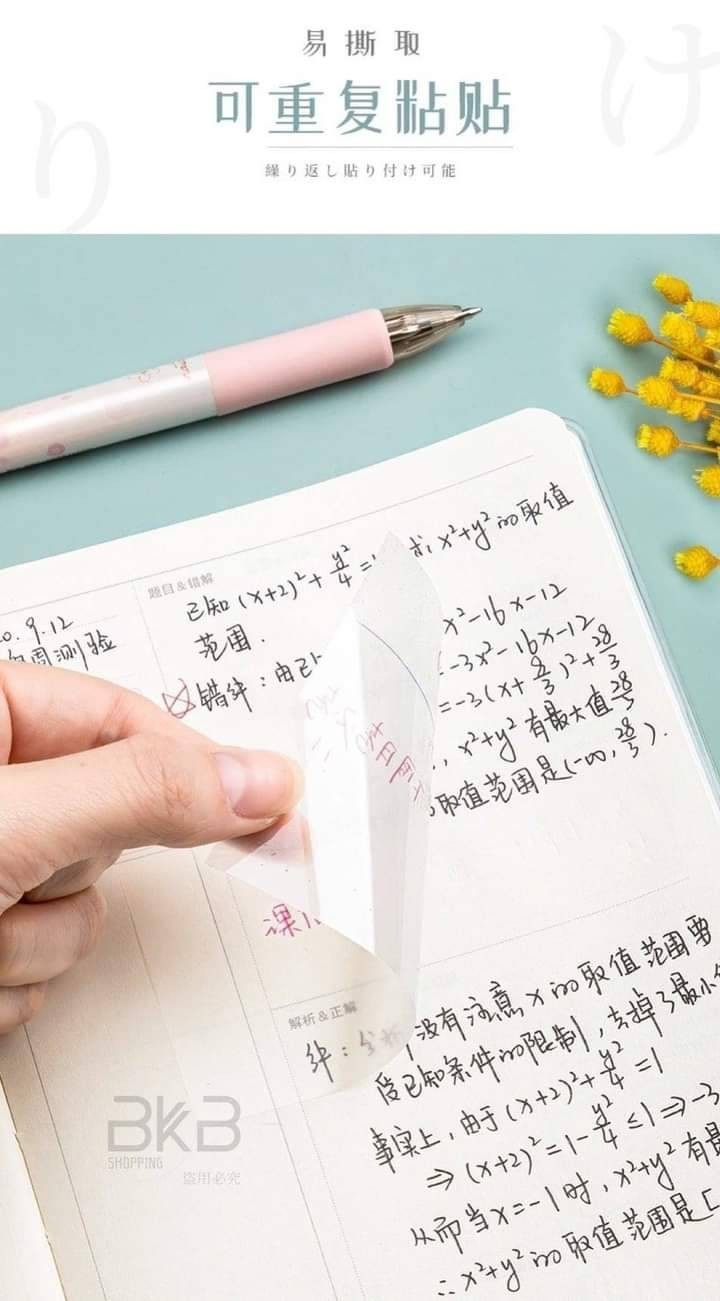 易撕取
可重复粘贴
繰り返し貼り付け可能
り
け
题目&错解
0.9.12
周测验
已知(x+2)²+y²/4=1,求x²+y²的取值
范围.
错解:由已
x²-16x-12
=-3x²-16x-12
=-3(x+8/3)²+28/3
∴x²+y²有最大值28/3
取值范围是(-∞,28/3).
课
解析&正解
解:分析
没有注意x的取值范围要
受已知条件的限制,去掉了最小
事实上,由于(x+2)²+y²/4=1
⇒(x+2)²=1-y²/4≤1⇒-3
从而当x=-1时,x²+y²有最
∴x²+y²的取值范围是[
BKB
SHOPPING
盗用必究